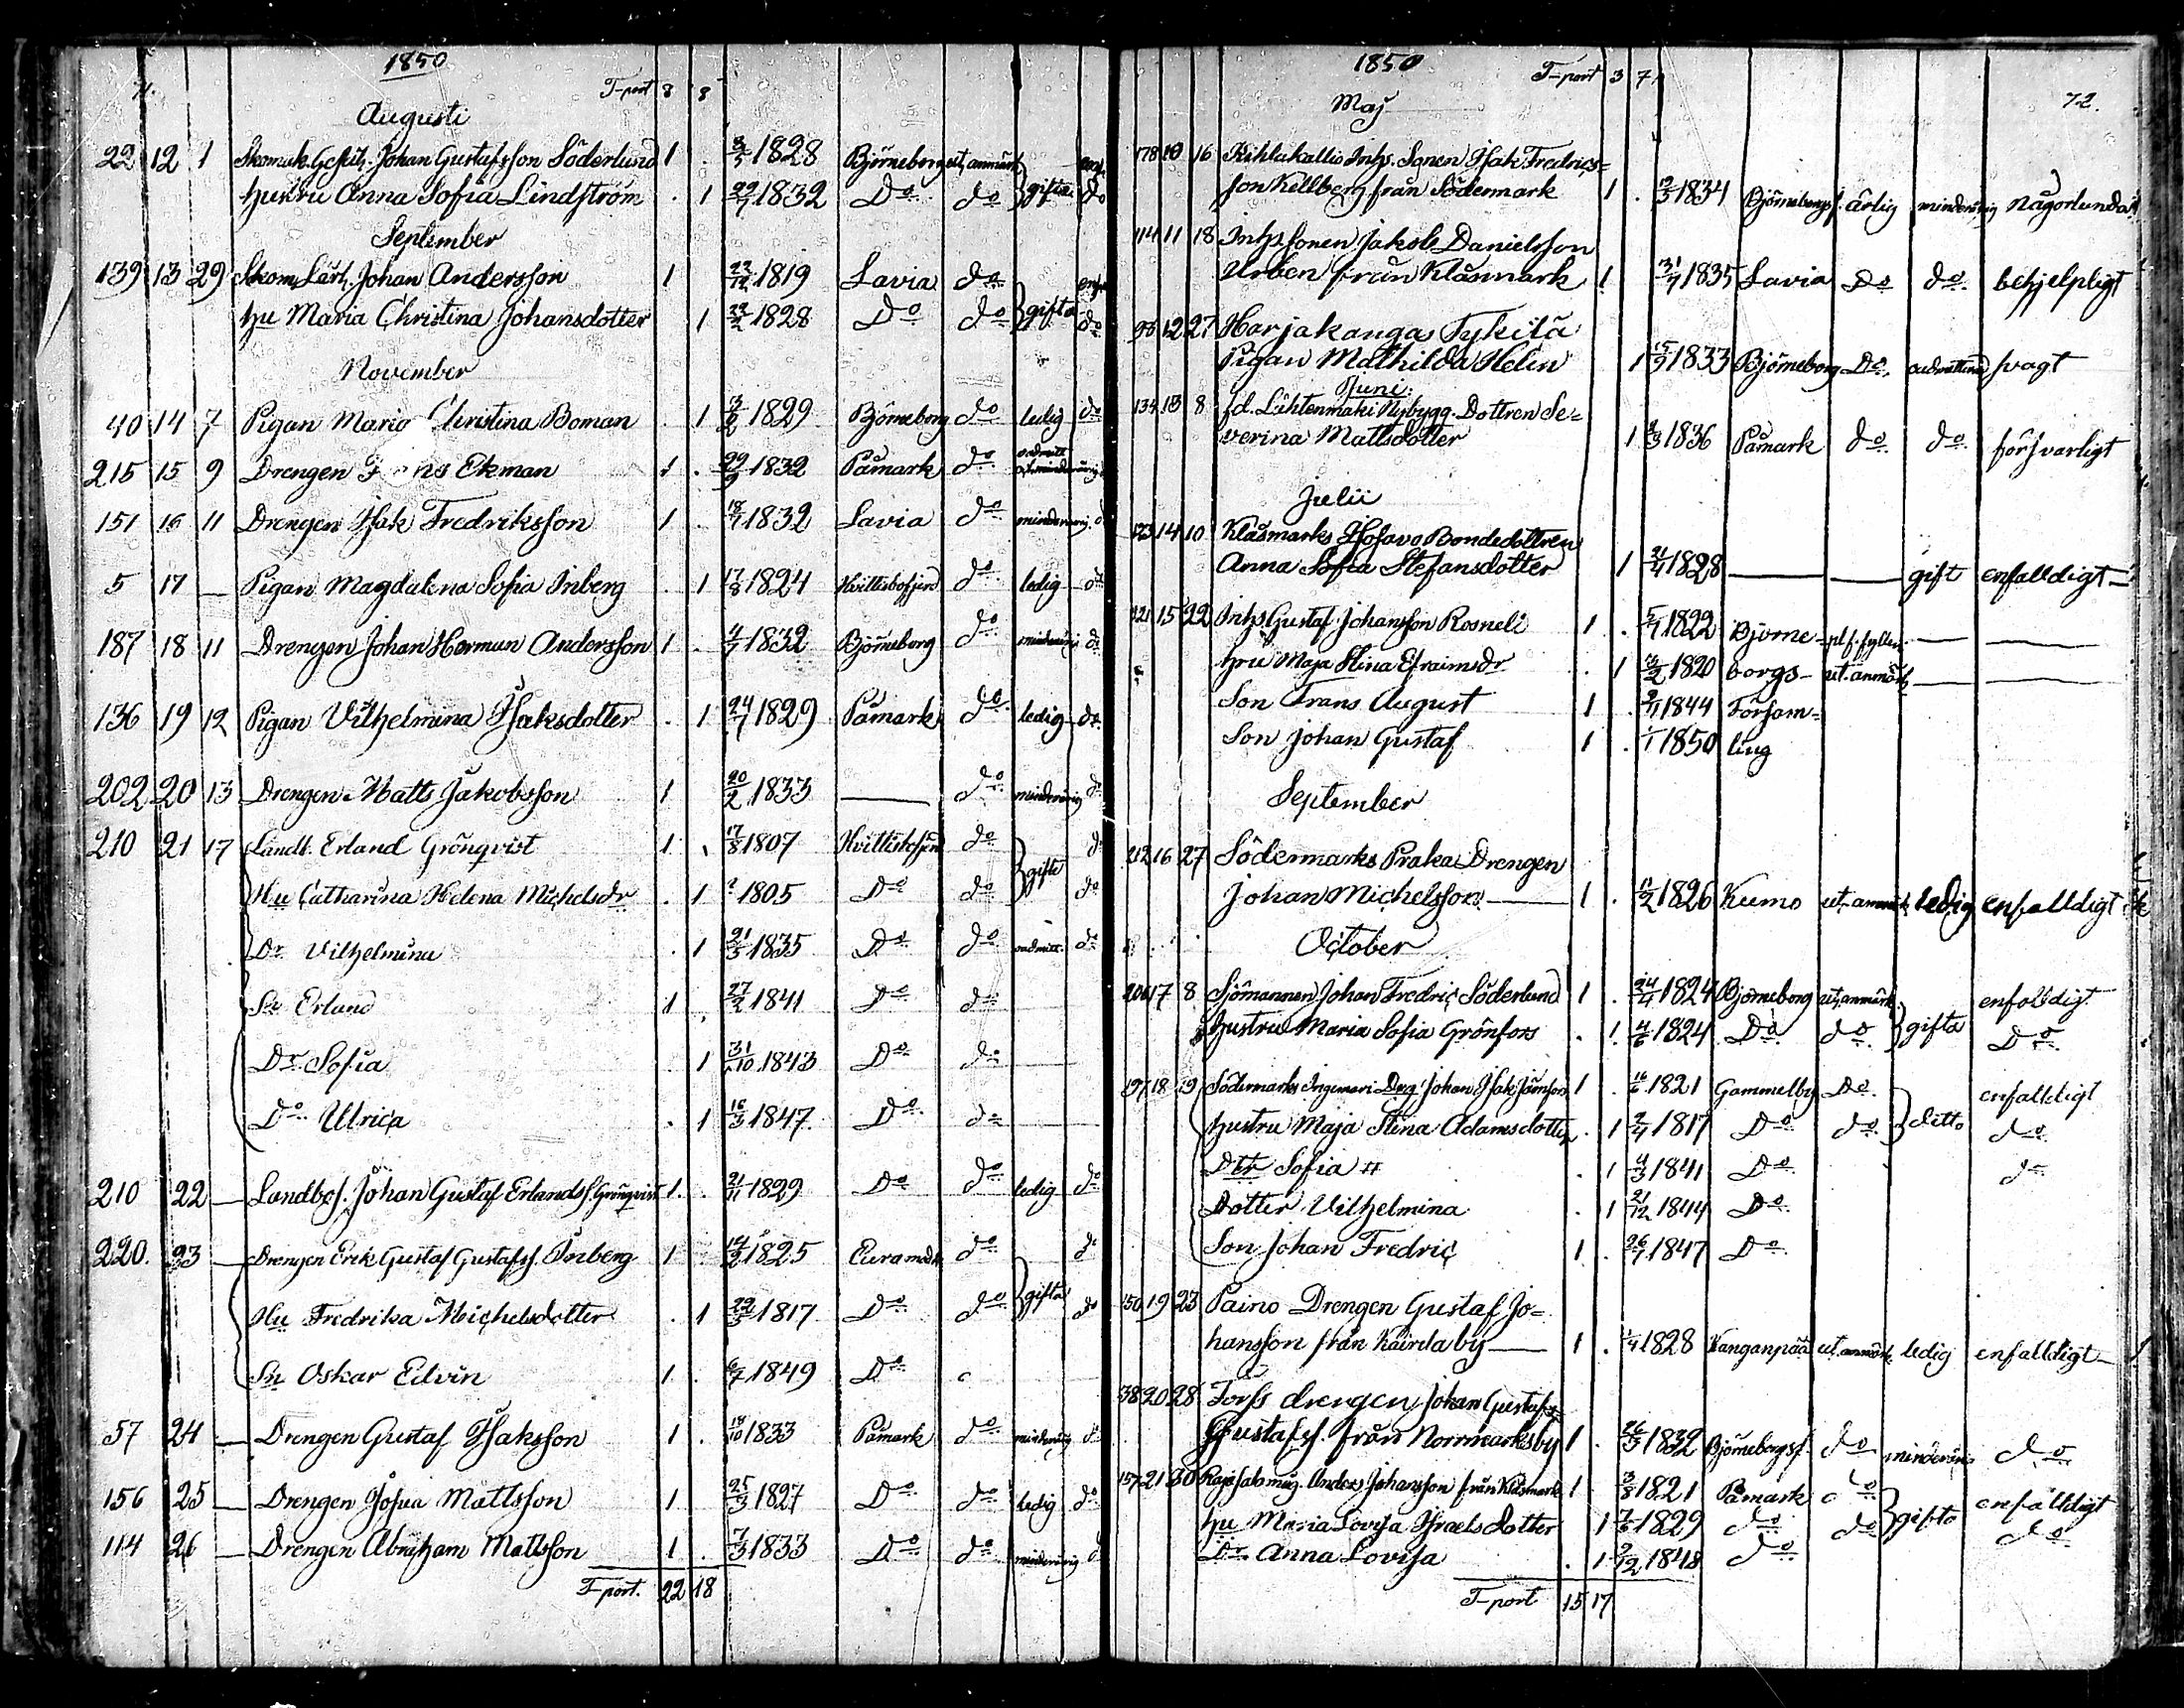 1850
T-port 8 8
Augusti
22 12 1 Skomak. Johan Gustafsson Söderlund 1 . 1828 Björneborg ut. anmärk
Hustru Anna Sofia Lindström . 1 1832 Do do gifta do
September
139 13 29 Johan Andersson 1 1819 Lavia do
Hu Maria Christina Johansdotter 1 1828 Do do gifta do
November
40 14 7 Pigan Maria Christina Boman . 1 1829 Björneborg do ledig do
215 15 9 Drengen Ekman 1 . 29/9 1832 Påmark do
151 16 11 Drengen Isak Fredriksson 1 . 1832 Lavia do minderårig
5 17 — Pigan Magdalena Sofia Inberg . 1 17/8 1824 Hvittisbofjerd do ledig do
187 18 11 Drengen Johan Herman Andersson 1 . 1832 Björneborg do minderårig do
136 19 12 Pigan Vilhelmina Isaksdotter . 1 24/7 1829 Påmark do ledig do
202 20 13 Drengen Matts Jakobsson 1 20/2 1833 — do minderårig do
210 21 17 Landb. Erland Grönqvist 1 . 17/8 1807 Hvittisbofjerd do gifte
Hu Catharina Helena Michelsdr . 1 1805 Do do do
Dr Vilhelmina . 1 21/3 1835 Do do oadmitt. do
Sn Erland 1 . 27/2 1841 Do do
Dr Sofia 1 31/10 1843 Do do
Do Ulrica . 1 1847 Do do
210 22 — Landbos. Johan Gustaf Erlands. Grönqvist 1 . 21/11 1829 Do do ledig do
220. 23 — Drengen Erik Gustaf Gustafss. Inberg 1 . 1825 Eura do gifta do
Hu Fredrika Michelsdotter . 1 1817 Do do do
Sn Oskar Edvin 1 . 6/7 1849 Do
57 24 — Drengen Gustaf Isaksson 1 . 18/10 1833 Påmark do minderårig do
156 25 — Drengen Josua Mattsson 1 . 25/3 1827 Do do ledig do
114 26 — Drengen Abraham Mattsson 1 . 7/3 1833 Do do minderårig
T-port. 22 18
1850
T-port 3 7
72.
Maj
178 10 16 Kihlakallio Inhs. Sonen Isak Fredrics=
son Kellberg från Södermark 1 . 1834 Björneborgsf. ärlig minderårig någorlunda
114 11 18 Inhs sonen Jakob Danielsson
Urben från Klåsmark 1 1835 Lavia Do do behjelpligt
12 27 Harjakangas Tykilä
Pigan Mathilda Helin 1 15/9 1833 Björneborg Do svagt
Juni.
134 13 8 fd. Lähtenmäki Nybygg. Dottren Se=
verina Mattsdotter 1 1836 Påmark do do försvarligt
Julii
123 14 10 Klåsmarks Isosavo Bondedottren
Anna Sofia Stefansdotter 1 21/4 1828 — — gift enfalldigt
121 15 22 Inhs. Gustaf Johansson Rosneli 1 . 1822 Björne= —
hru Maja Stina Efraimsdr . 1 1820 borgs- ut. anmärk —
Son Frans August 1 . 1844 Församl=
Son Johan Gustaf 1 . 1850 ling
September
212 16 27 Södermarks Praka Drengen
Johan Michelsson 1 . 11/2 1826 Kumo ut. anmärk ledig enfalldigt
October
17 8 Sjömannen Johan Fredric Söderlund 1 . 24/4 1824 Björneborg ut. anmärk. gifta enfalldigt
Hustru Maria Sofia Grönfors . 1 4/6 1824 Do do Do
197 18 19 Södermarks Ingemari Drg Johan Isak 1 . 1821 Gammelby Do ditto enfalldigt
Hustru Maja Stina Adamsdotter . 1 1817 Do do do
Dtr Sofia . 1 4/3 1841 Do do
Dotter Vilhelmina . 1 21/12 1844 Do
Son Johan Fredric 1 . 26/7 1847 Do
150 19 23 Paino Drengen Gustaf Jo=
hansson från Kairila by — 1 . 1828 Kanganpää ut. anmärk. ledig enfalldigt
38 20 28 Torss drengen Johan Gustaf
Gustafss. från Norrmarksby 1 . 26/3 1832 Björneborgsf. do minderårig do
157 21 30 Anders Johansson från Klåsmark 1 3/8 1821 Påmark do gifta enfalldigt
Hu Maria Lovisa Israelsdotter 1 1829 do do do
Dr Anna Lovisa . 1 1848 do
T-port 15 17